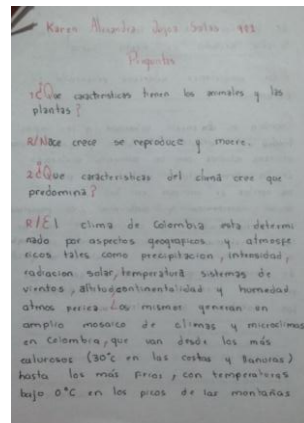 Karen Alexandra Rojas 901
Preguntas
1¿Que caracteristicas tienen los animales y las
plantas?
R/Nace crece se reproduce y muere.
2¿Que caracteristicas del clima cree que
predomina?
R/El clima de Colombia esta determi
nado por aspectos geograficos y atmosfe
ricos tales como precipitacion, intensidad,
radiacion solar, temperatura sistemas de
vientos, altitud, continentalidad y humedad
atmos ferica. Los mismos generan un
amplio mosaico de climas y microclimas
en Colombia, que van desde los más
calurosos (30°c en las costas y llanuras)
hasta los más frios, con temperaturas
bajo 0°C en los picos de las montañas